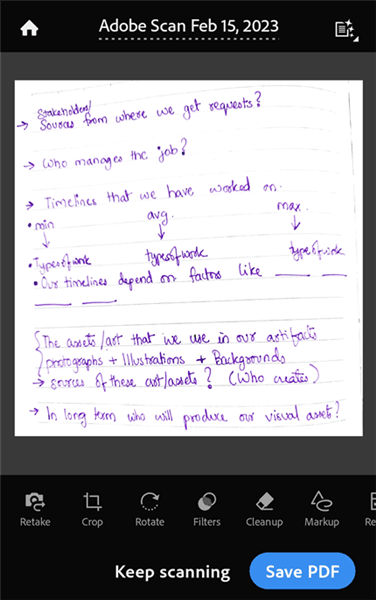 Adobe Scan Feb 15, 2023
Stakeholders/
→ Sources from where we get requests?
→ Who manages the job?
→ Timelines that we have worked on.
• min avg. max.
↓ ↓ ↓
• Types of work types of work types of work
• Our timelines depend on factors like ____ ____
____ ____
{The assets/art that we use in our artifacts
photographs + Illustrations + Backgrounds
→ sources of these art/assets? (Who creates)
→ In long term who will produce our visual asset?
Retake Crop Rotate Filters Cleanup Markup Re
Keep scanning Save PDF